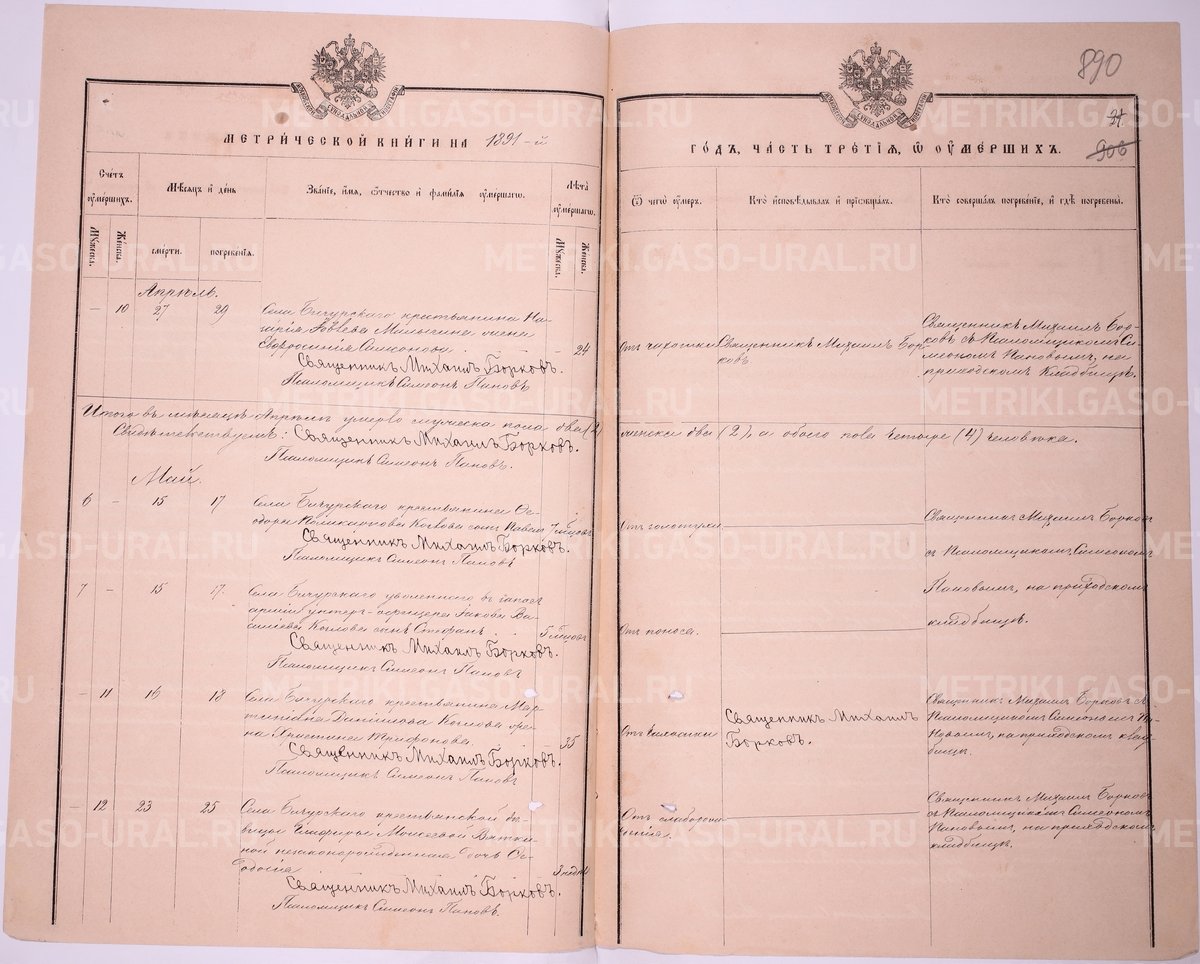 890
МЕТРИ́ЧЕСКОЙ КНИ́ГИ НА 1891-й
ГО́ДЪ, ЧА́СТЬ ТРЕ́ТІЯ, Ѿ ОУМЕ́РШИХЪ.
91.
906
Счетъ оумершихъ.
Мѣсяцъ и день
Званіе, имя, отчество и фамилія оумершагѡ.
Лѣта оумершагѡ.
Ѿ чегѡ оумеръ.
Кто исповѣдывалъ и пріобщалъ.
Кто совершалъ погребеніе, и гдѣ погребены.
Мужеска.
Женска.
смерти.
погребенія.
Мужеска.
Женска.
Апрѣль.
– 10 27 29 Села Бичурскаго крестьянина На-
зарія Малыгина жена
Евфросинія Симеонова 24
Священникъ Михаилъ Борковъ.
Псаломщикъ Симеонъ Поповъ
Отъ чахотки
Священникъ Михаилъ Бор-
ковъ
Священникъ Михаилъ Бор-
ковъ съ Псаломщикомъ Си-
меономъ Поповымъ, на
приходскомъ кладбищѣ.
Итого въ мѣсяцѣ Апрѣлѣ умерло мужеска пола два (2)
женска два (2), а обоего пола четыре (4) человѣка.
Свидѣтельствуемъ: Священникъ Михаилъ Борковъ.
Псаломщикъ Симеонъ Поповъ.
Май.
6 – 15 17 Села Бичурскаго крестьянина Ѳе-
дора Козлова сынъ Павелъ 7 мѣсяц
Священникъ Михаилъ Борковъ.
Псаломщикъ Симеонъ Поповъ
Отъ золотухи
Священникъ Михаилъ Борковъ
съ Псаломщикомъ Симеономъ
Поповымъ, на приходскомъ
кладбищѣ.
7 – 15 17 Села Бичурскаго уволеннаго въ запасъ
арміи унтеръ-офицера Іакова Ва-
сильева Козлова сынъ Стефанъ 5 мѣсяц
Священникъ Михаилъ Борковъ.
Псаломщикъ Симеонъ Поповъ
Отъ поноса.
– 11 16 18 Села Бичурскаго крестьянина Мар-
Даніилова Козлова же-
на Христина Трифонова. 35
Священникъ Михаилъ Борковъ.
Псаломщикъ Симеонъ Поповъ
Отъ чахотки
Священникъ Михаилъ
Борковъ.
Священникъ Михаилъ Борковъ съ
Псаломщикомъ Симеономъ По-
повымъ, на приходскомъ клад-
бищѣ.
– 12 23 25 Села Бичурскаго крестьянской дѣ-
вицы Глафиры Моисеевой Вятки-
ной незаконорожденная дочь Ѳе-
одосія 3 недѣл
Священникъ Михаилъ Борковъ.
Псаломщикъ Симеонъ Поповъ.
Отъ слабости
Священникъ Михаилъ Борковъ
съ Псаломщикомъ Симеономъ
Поповымъ, на приходскомъ
кладбищѣ.
METRIKI.GASO-URAL.RU